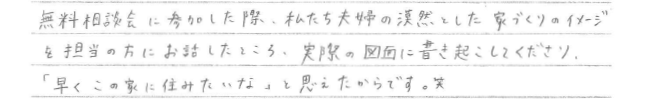 無料相談会に参加した際、私たち夫婦の漠然とした家づくりのイメージ
を担当の方にお話したところ、実際の図面に書き起こしてくださり、
「早くこの家に住みたいな」と思えたからです。笑